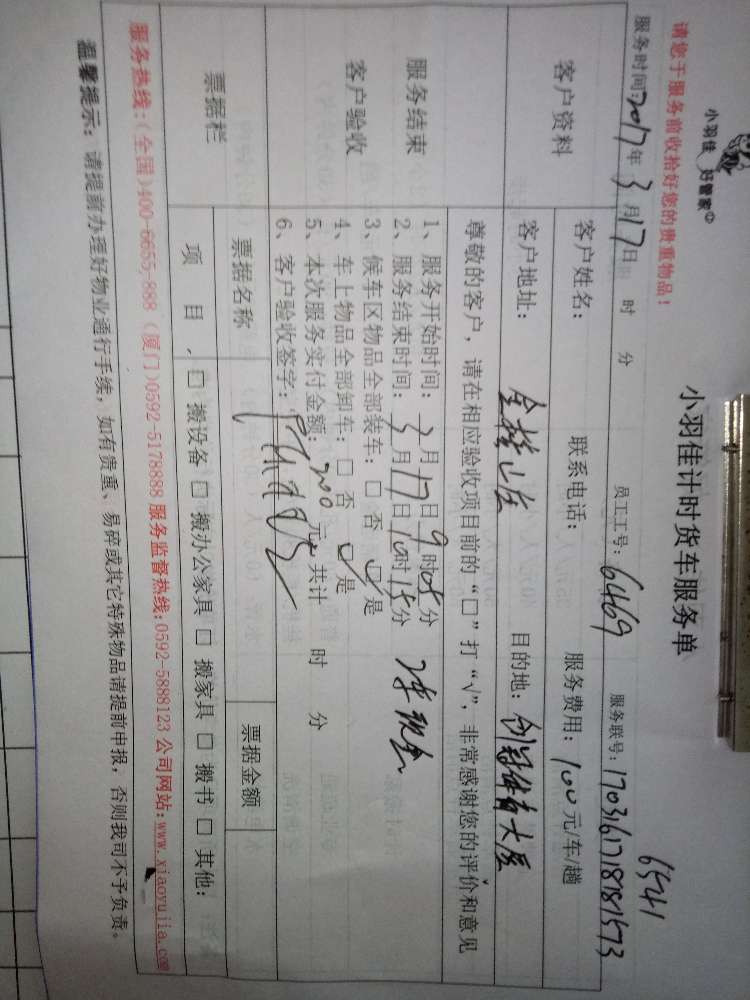 小羽佳 好管家
小羽佳计时货车服务单
6541
请您于服务前收拾好您的贵重物品！
服务时间:2017年 3月17日 时 分 员工工号: 6469 服务联号:
客户资料
客户姓名: 联系电话: 服务费用: 100元/车/趟
客户地址: 山庄 目的地: 大厦
服务结束
客户验收
尊敬的客户，请在相应验收项目前的“□”打“√”，非常感谢您的评价和意见
1、服务开始时间: 3月17日9时05分
2、服务结束时间: 3月17日10时15分
3、候车区物品全部装车: □ 否 ☑ 是
4、车上物品全部卸车: □ 否 ☑ 是
5、本次服务实付金额: 200元 共计 时 分
6、客户验收签字:
票据栏
票据名称 票据金额
项 目 □ 搬设备 □ 搬办公家具 □ 搬家具 □ 搬书 □ 其他:
服务热线:(全国)400-6655-888 (厦门)0592-5178888 服务监督热线:0592-5888123 公司网站:www.xiaoyujia.com
温馨提示: 请提前办理好物业通行手续，如有贵重、易碎或其它特殊物品请提前申报，否则我司不予负责。